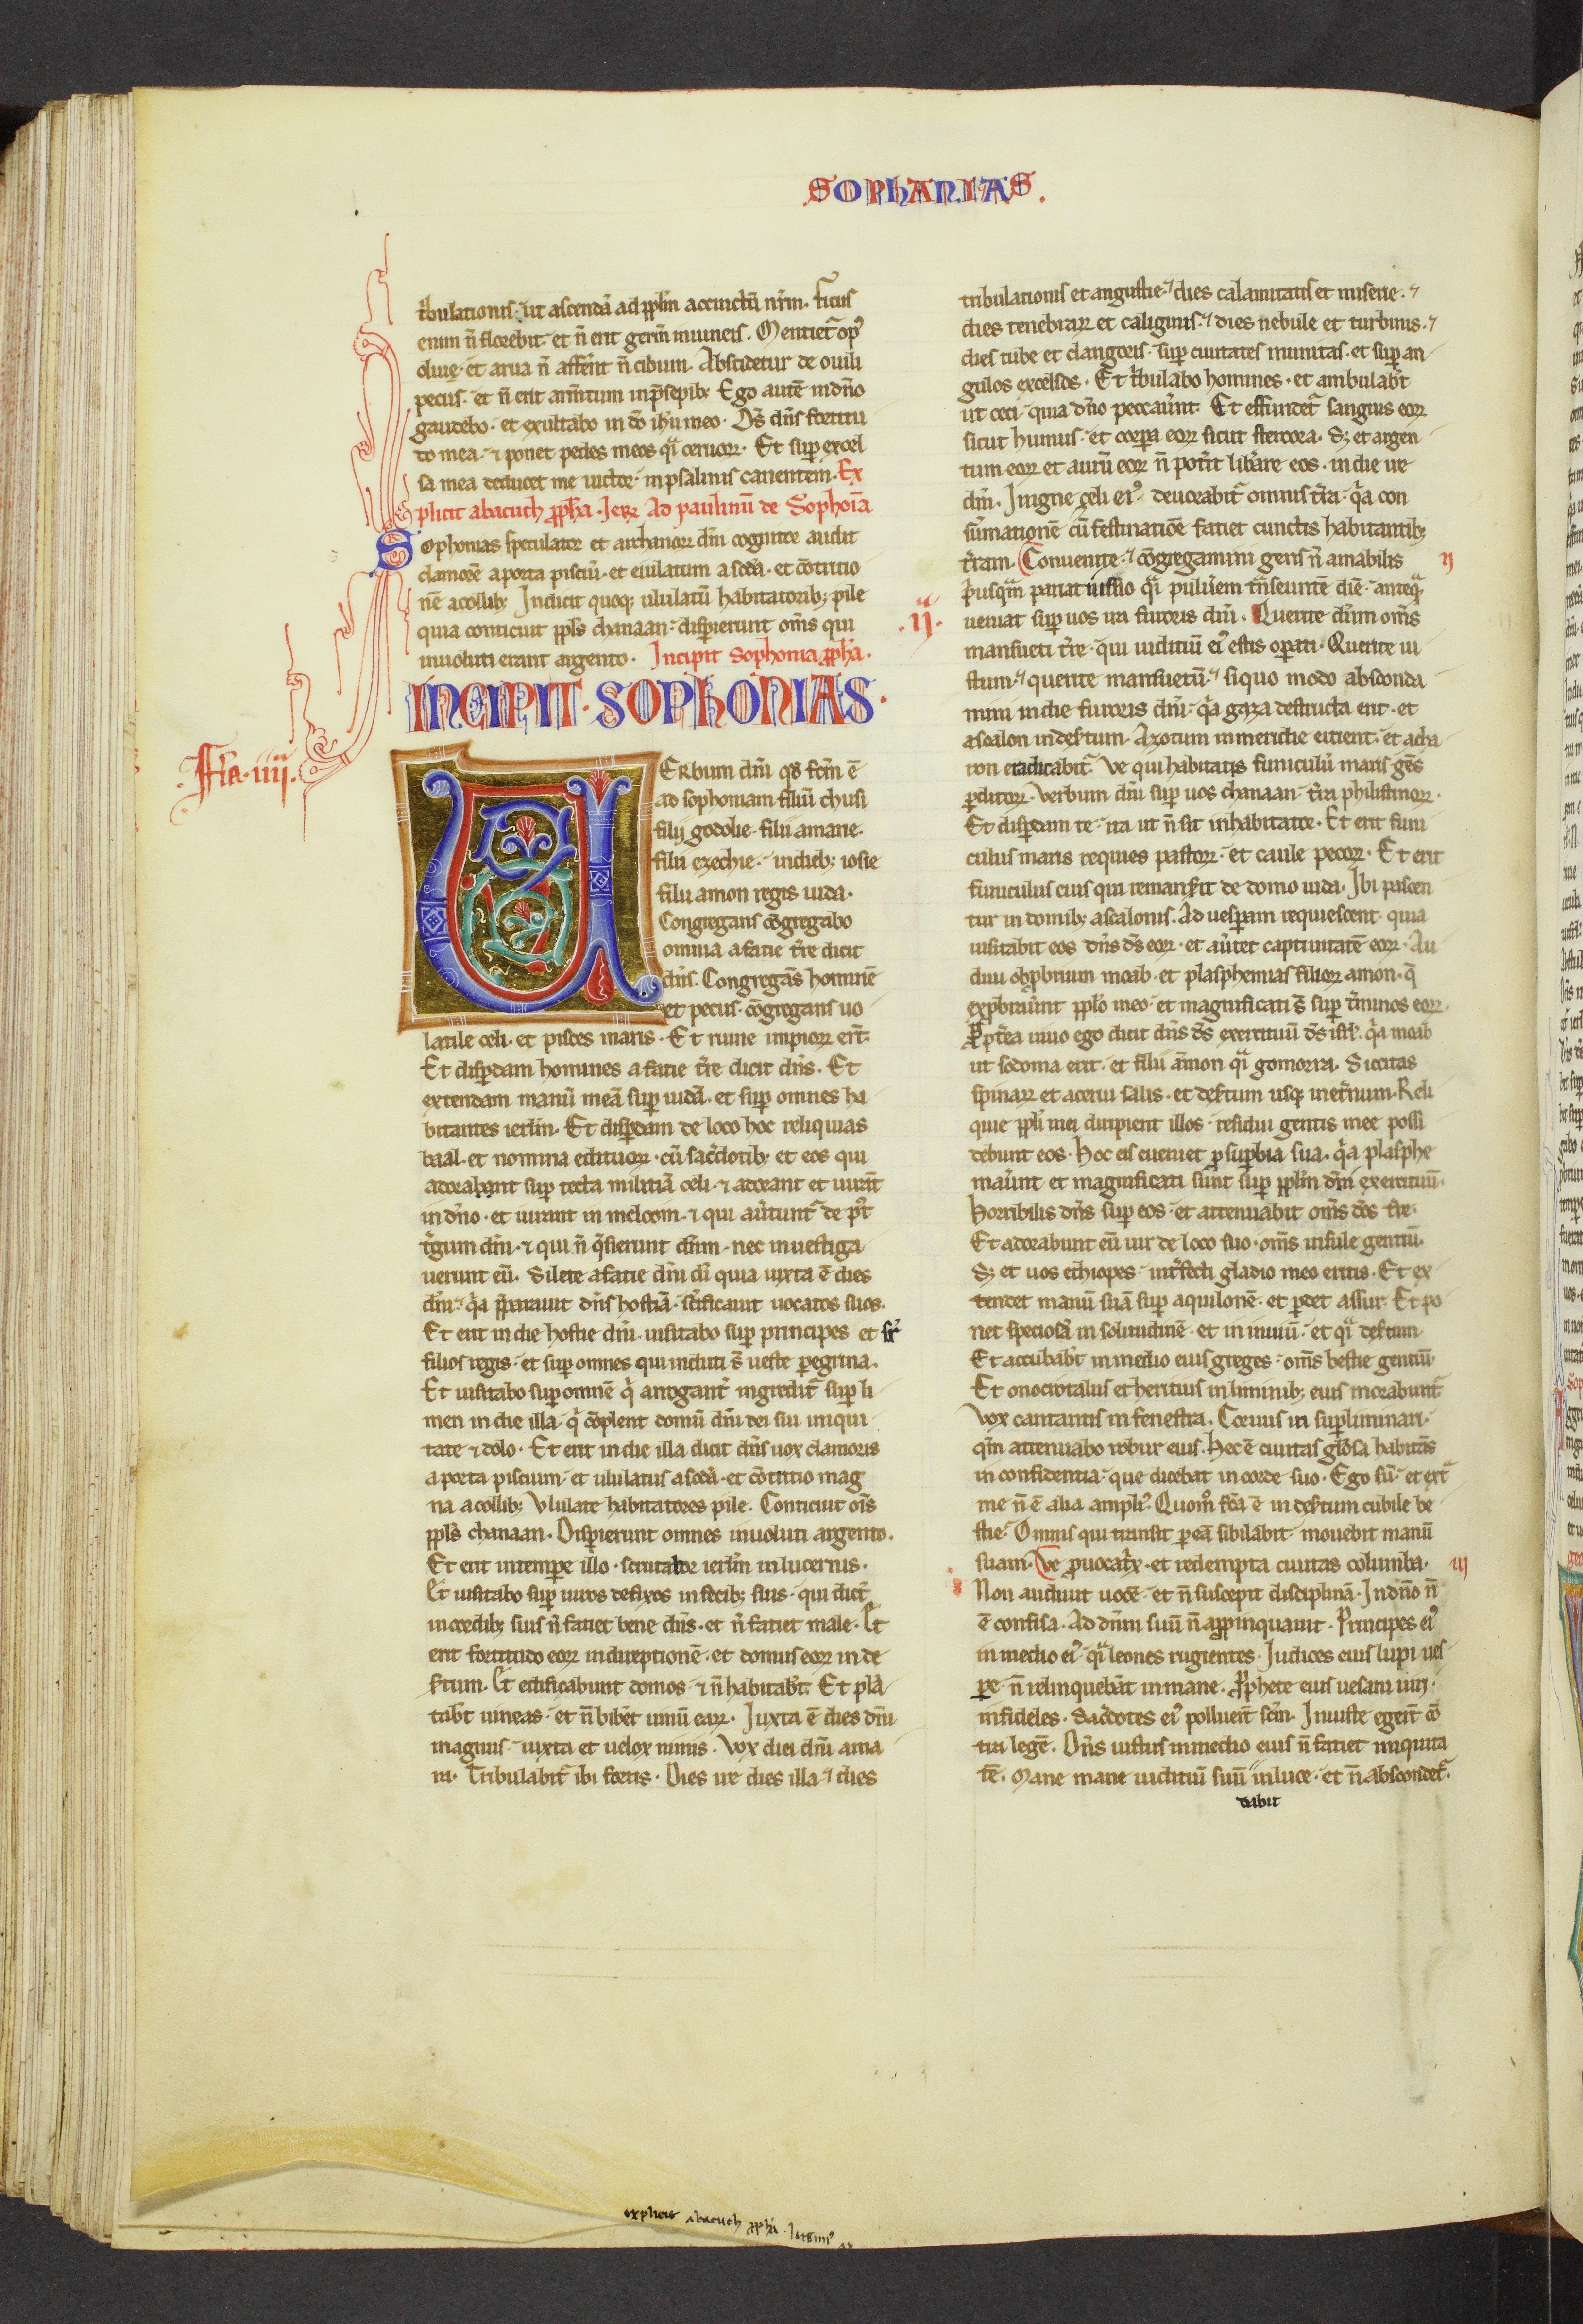 SOPHANIAS.
t̾bulationis· ut ascendā ad pp̄lm accinctū nr̄m. ficus
enim n̄ florebit· et n̄ erit germ̄ in uineis. Mentiet᷑ op᷒
oliuę· et arua n̄ affer̄nt cibum. Abscidetur de ouili
pecus· et n̄ erit arm̄tum in p̄sepib; Ego autē in dn̄o
gaudebo· et exultabo in dō ih̄u meo· Ds̄ dn̄s fortitu
to mea· ⁊ ponet pedes meos qͣ ceruoꝝ. Et sup̄ excel
sa mea deducet me uictor· in psalmis canentem. Ex
plicit abacuch pp̄ha. Jeꝝ Ad paulinū de Sophōia
Sophonias speculator et archanoꝝ dn̄i cognitor audit
clamorē a porta pisciū· et eiulatum a scd̄a· et cōtritio
nē a collib; Indicit quoq; ululatū habitatorib; pile
quia conticuit ppl̄s chanaan· disperierunt om̄s qui
inuoluti erant argento. Incipit Sophonia pp̄ha.
INCIPIT·SOPHONIAS·
Fīa·iiii·
VERbum dn̄i qd̄ fcm̄ ē
ad sophoniam filiū chusi
filii godolie· filii amarie·
filii ezechie· in dieb; iosie
filii amon regis iuda·
Congregans cōgregabo
omnia a facie t̄re dicit
dn̄s. Congregās hominē
et pecus· cōgregans uo
latile celi· et pisces maris· Et ruine impioꝝ er̄t.
Et disperdam homines a facie t̄re dicit dn̄s. Et
extendam manū meā sup̄ iudā· et sup̄ omnes ha
bitantes ierl̄m. Et disperdam de loco hoc reliquias
baal· et nomina edituoꝝ· cū sac̄dotib; et eos qui
adorabant sup̄ tecta militiā celi· ⁊ adorant et iurāt
in dn̄o· et iurant in melcom· ⁊ qui au̾tunt᷑ de p᷒t
t̾gum dn̄i· ⁊ qui n̄ q̄sierunt dn̄m· nec inuestiga
uerunt eū. Silete a facie dn̄i dī quia iuxta ē dies
dn̄i· qͥa pp̄arauit dn̄s hostiā· sc̄ificauit uocatos suos.
Et erit in die hostie dn̄i· uisitabo sup̄ principes et sr̄
filios regis· et sup̄ omnes qui induti s̄ ueste peregrina.
Et uisitabo sup̄ omnē qͥ arrogant᷑ ingredit᷑ sup̄ li
men in die illa· qͥ cōplent domū dn̄i dei sui iniqui
tate ⁊ dolo· Et erit in die illa dicit dn̄s uox clamoris
a porta piscium· et ululatus a scd̄a· et cōtritio mag
na a collib; Vlulate habitatores pile. Conticuit om̄s
ppl̄s chanaan. Disperierunt omnes inuoluti argento.
Et erit in tempore illo· scrutabor ierl̄m in lucernis·
Et uisitabo sup̄ uiros defixos in fecib; suis· qui dicūt
in cordib; suis n̄ faciet bene dn̄s· et n̄ faciet male. Et
erit fortitudo eoꝝ in direptionē· et domus eoꝝ in de
s̾tum. Et edificabunt domos· ⁊ n̄ habitab̄t. Et plā
tab̄t uineas· et n̄ bibēt uinū eaꝝ. Iuxta ē dies dn̄i
magnus· iuxta et uelox nimis. Vox diei dn̄i ama
ra. Tribulabit᷑ ibi fortis. Dies ire dies illa· ⁊ dies
tribulationis et angustie· ⁊ dies calamitatis et miserie· ⁊
dies tenebraꝝ et caliginis· ⁊ dies nebule et turbinis· ⁊
dies tube et clangoris· sup̄ ciuitates munitas· et sup̄ an
gulos excelsos. Et t̾bulabo homines· et ambulab̄t
ut ceci· quia dn̄o peccau̾nt. Et effundet᷑ sanguis eoꝝ
sicut humus· et corpora eoꝝ sicut stercora. S; et argen
tum eoꝝ et aurū eoꝝ n̄ pot̾it lib̾are eos· in die ire
dn̄i. In igne zeli ei᷒ deuorabit᷑ omnis t̄ra· qͥa con
sūmationē cū festinatiōe faciet cunctis habitantib;
t̄ram. Conuenite· ⁊ cōgregamini gens n̄ amabilis ij
p̾usqͣm pariat iussio qͣ puluerem tn̄seuntē diē· anteqͣ
·ij· ueniat sup̄ uos ira furoris dn̄i. Querite dn̄m om̄s
mansueti t̄re· qui iuditiū ei᷒ estis operati. Querite iu
stum· ⁊ querite mansuetū· ⁊ si quo modo absconda
mini in die furoris dn̄i· qͥa gaza destructa erit· et
ascalon in des̾tum. Azotum in meridie eicient· et acha
ron eradicabit᷑. Ve qui habitatis funiculū maris gēs
perditoꝝ. Verbum dn̄i sup̄ uos chanaan· t̄ra philistinoꝝ·
Et disperdam te· ita ut n̄ sit inhabitator. Et erit funi
culus maris requies pastoꝝ· et caule pecoꝝ. Et erit
funiculus eius qui remans̾it de domo iuda. Ibi pascen
tur in domib; ascalonis. Ad uesperam requiescent· quia
uisitabit eos dn̄s ds̄ eoꝝ· et au̾tet captiuitatē eoꝝ. Au
diui obprobrium moab· et plasphemias filioꝝ amon· qͥ
exprobrau̾nt pplo meo· et magnificati s̄ sup̄ t̾minos eoꝝ.
Propt̾ea uiuo ego dicit dn̄s ds̄ exercituū ds̄ isrl̄· qͥa moab
ut sodoma erit· et filii āmon qͣ gomorra. Siccitas
spinaꝝ et acerui salis· et des̾tum usq; in et̾num. Reli
quie ppl̄i mei diripient illos· residui gentis mee possi
debunt eos. Hoc eis eueniet p̄ superbia sua· qͥa plasphe
mau̾nt et magnificati sunt sup̄ ppl̄m dn̄i exercituū.
Horribilis dn̄s sup̄ eos· et attenuabit om̄s dōs t̄re·
Et adorabunt eū uir de loco suo· om̄s insule gentiū.
S; et uos ethiopes· int̾fecti gladio meo eritis. Et ex
tendet manū suā sup̄ aquilonē· et perdet assur. Et po
net speciosā in solitudinē· et in inuiū· et qͣ des̾tum
Et accubab̄t in medio eius greges· om̄s bestie gentiū.
Et onocrotalus et hericius in liminib; eius morabunt᷑
Vox cantantis in fenestra. Coruus in superliminari·
qm̄ attenuabo robur eius. Hec ē ciuitas glōsa habitās
in confidentia· que dicebat in corde suo. Ego sū· et extͣ
me n̄ ē alia ampli᷒. Quom̊ fc̄a ē in des̾tum cubile be
stie. Omnis qui transit per eā sibilabit· mouebit manū
suam. Ve prouocatͥx· et redempta ciuitas columba. iij
Non audiuit uocē· et n̄ suscepit disciplinā. In dn̄o n̄
ē confisa. Ad dn̄m suū n̄ appropinquauit. Principes ei᷒
in medio ei᷒ qͣ leones rugientes. Iudices eius lupi ues
pere· n̄ relinquebāt in mane. Prophete eius uesani uiri·
infideles. Sac̄dotes ei᷒ polluer̄t scm̄. Iniuste eger̄t cō
tra legē. Dn̄s iustus in medio eius n̄ faciet iniquita
tē. Mane mane iuditiū suū in luce· et n̄ abscondet᷑.
dabit
explicit abacuch pp̄ha